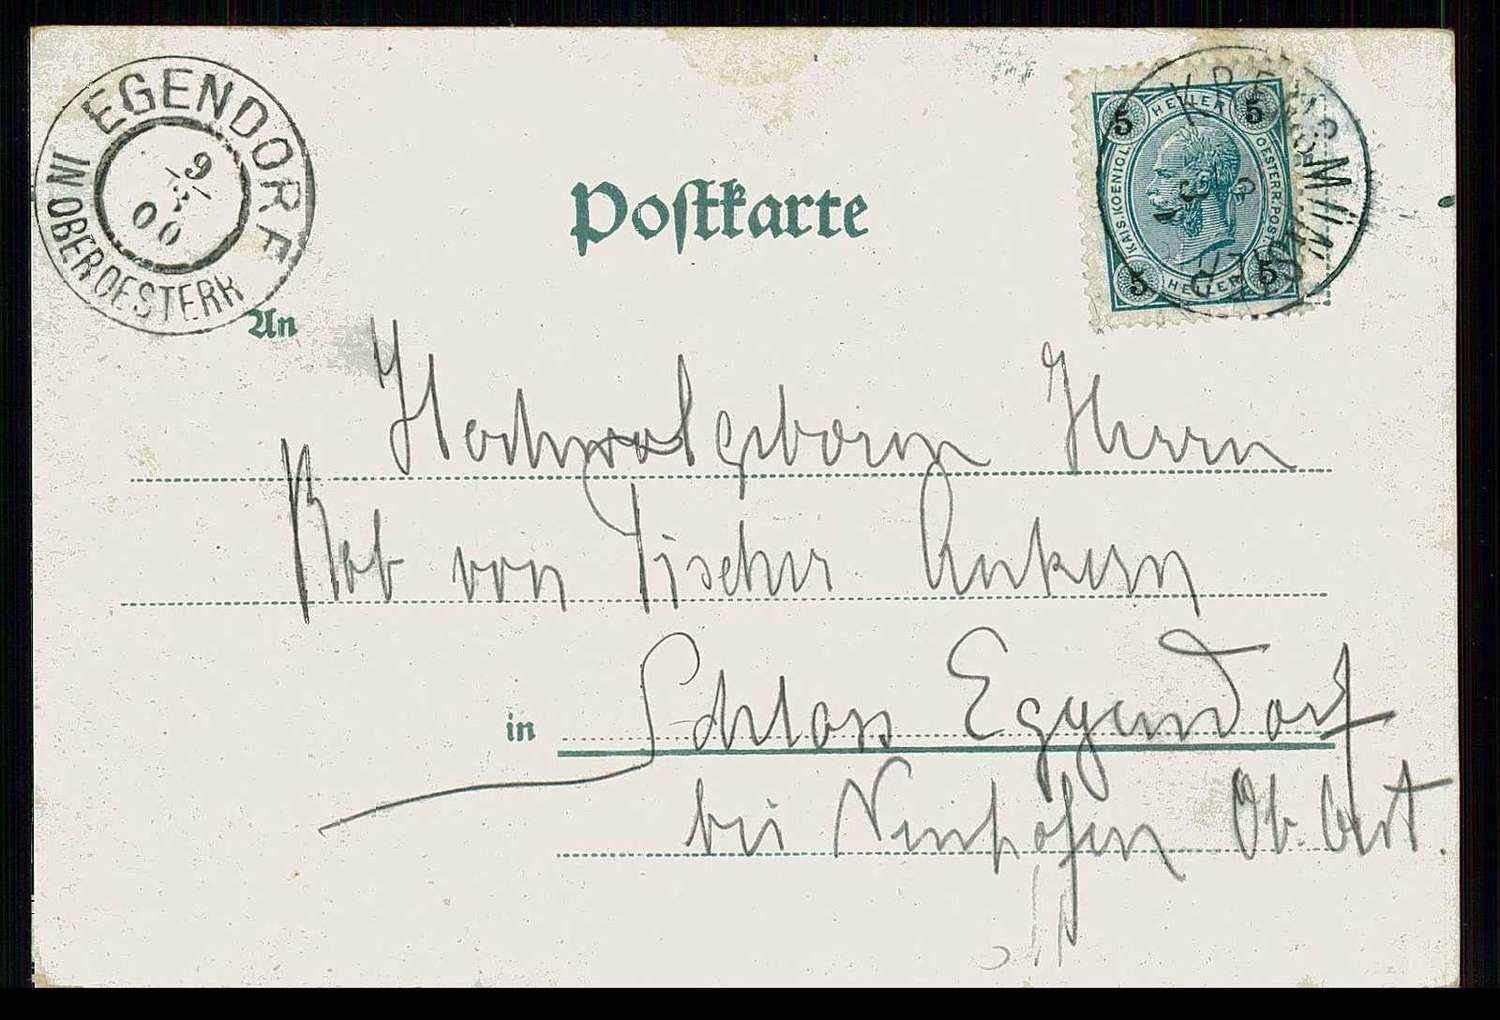 EGENDORF
IN OBEROESTERR
9/3 00
Postkarte
KREMSMÜNSTER
5 HELLER 5
KAIS. KOENIGL. OESTERR. POST
5 HELLER 5
An
Hochwolgeborn Herrn
Rob von Tischer Ankern
in Schloss Eggendorf
bei Neuhofen Ob. Œst.